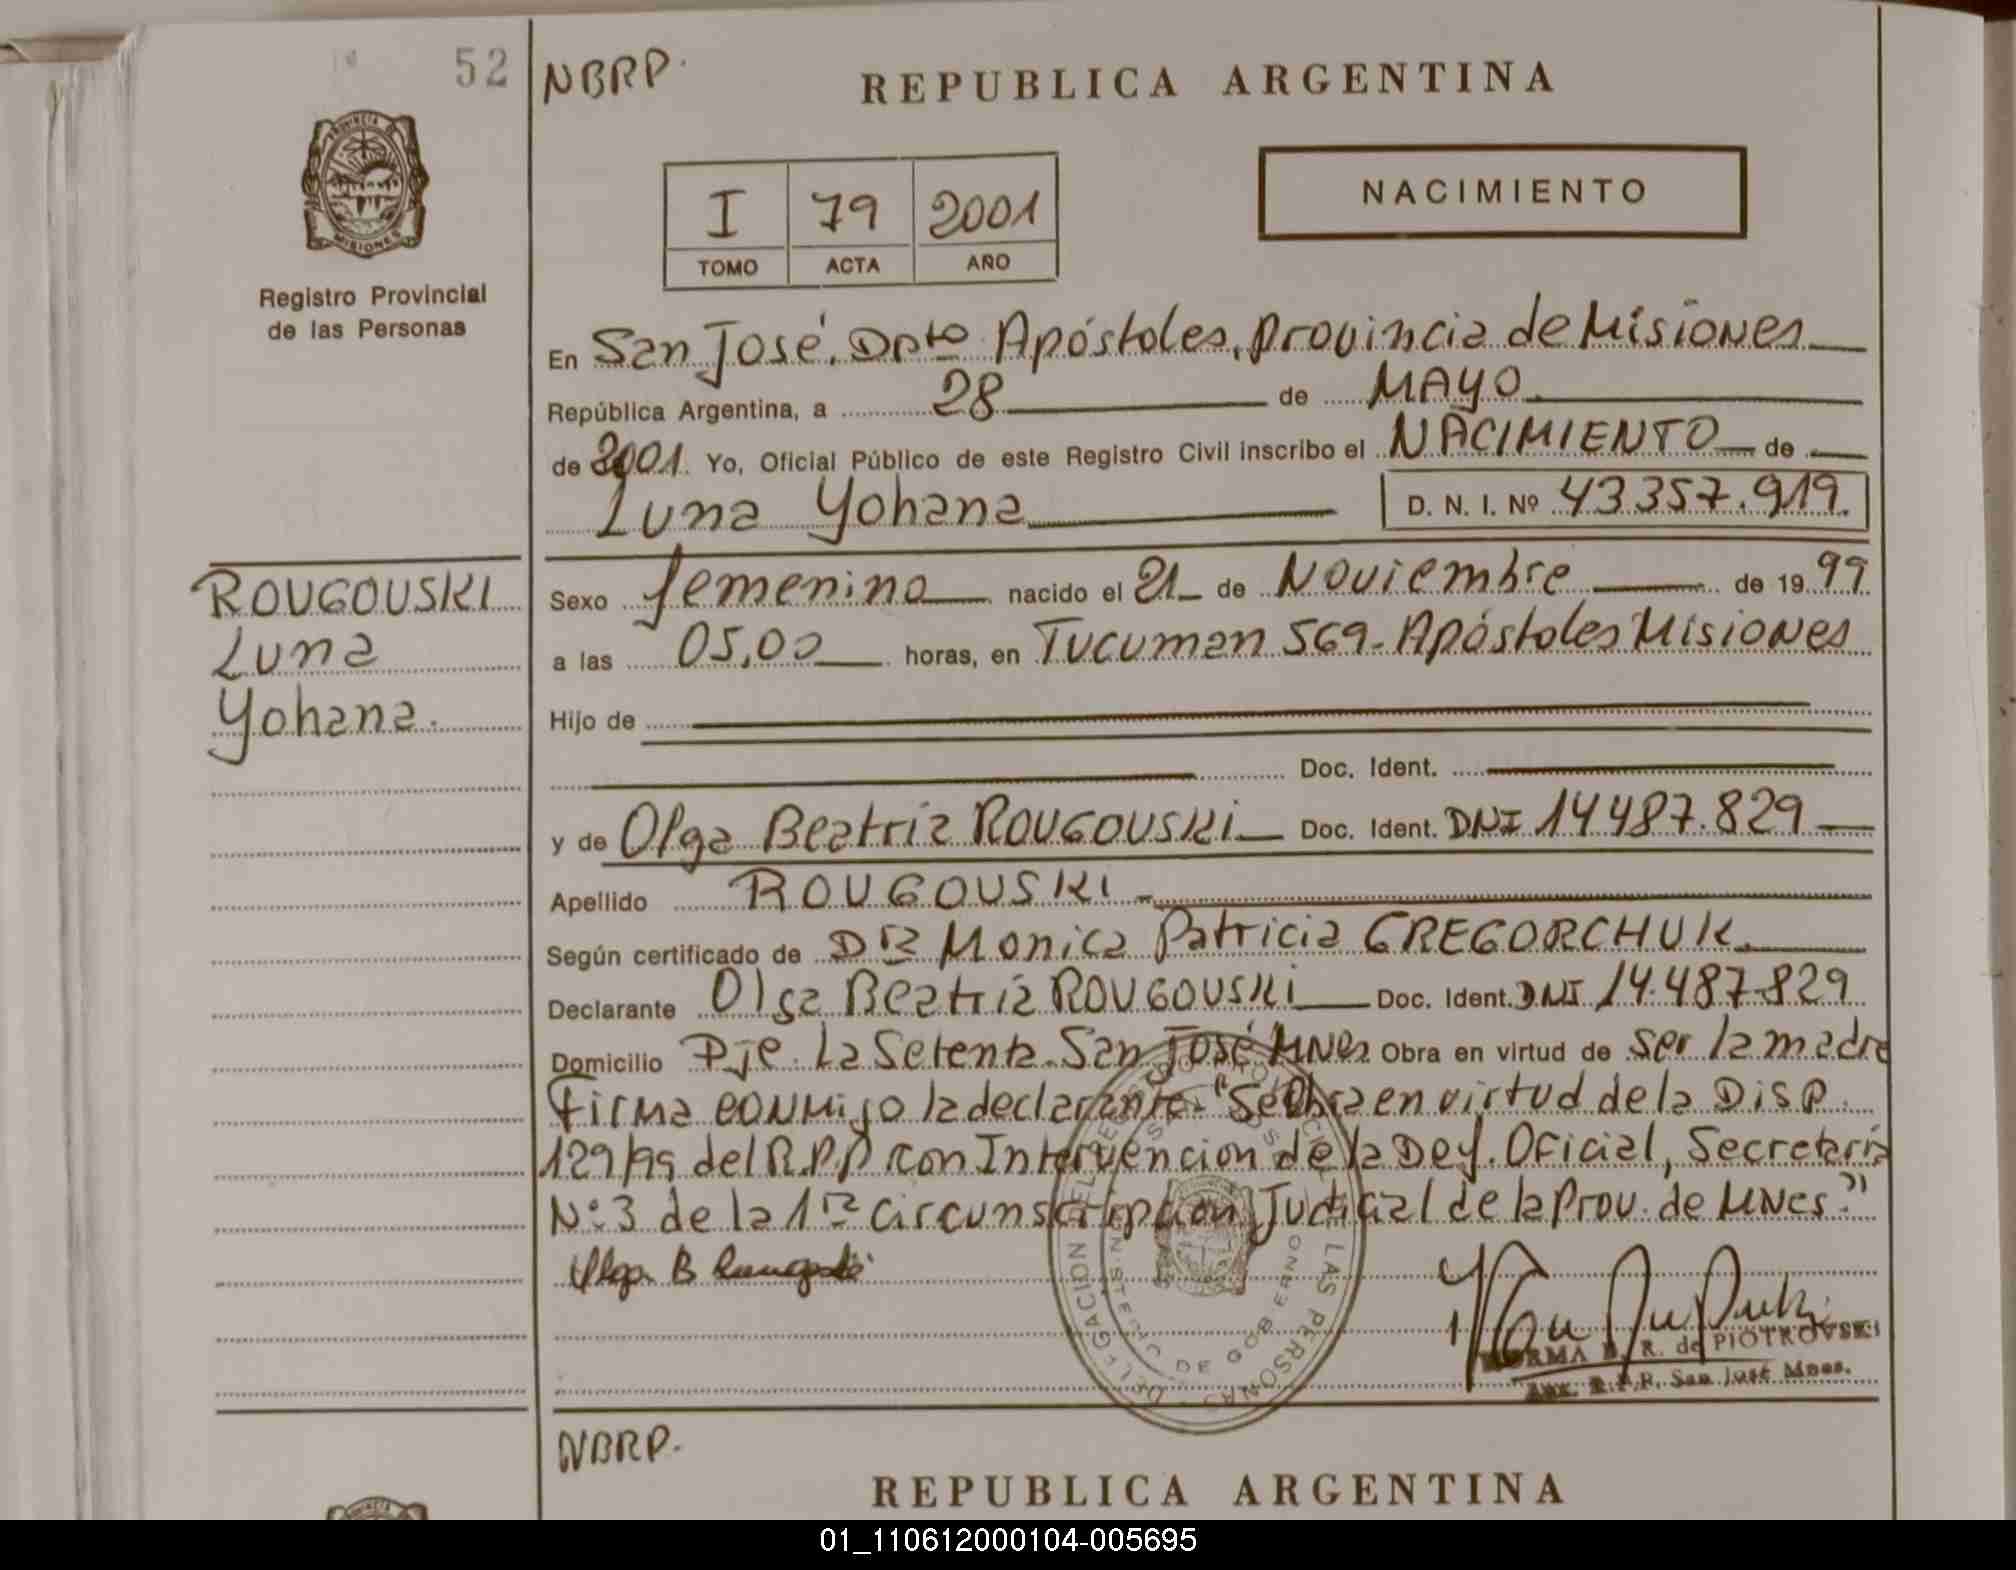 52
NBRP.
REPUBLICA ARGENTINA
PROVINCIA DE
MISIONES
Registro Provincial
de las Personas
I 79 2001
TOMO ACTA AÑO
NACIMIENTO
En San José. Dpto Apóstoles, provincia de Misiones
República Argentina, a 28 de MAYO
de 2001. Yo, Oficial Público de este Registro Civil inscribo el NACIMIENTO de
Luna Yohana D. N. I. Nº 43357.919.
ROUGOUSKI
Luna
Yohana.
Sexo femenino nacido el 21 de Noviembre de 1999
a las 05,00 horas, en Tucuman 569-Apóstoles Misiones
Hijo de
Doc. Ident.
y de Olga Beatriz ROUGOUSKI Doc. Ident. DNI 14487.829
Apellido ROUGOUSKI-
Según certificado de Dra Monica Patricia GREGORCHUK.
Declarante Olga Beatriz ROUGOUSKI Doc. Ident. DNI 14.487.829
Domicilio Pje. La Setenta. San José Mnes Obra en virtud de ser la madre
Firma conmigo la declarante- "Se Obra en virtud de la Disp.
129/99 del R.P.P con Intervencion de la Def. Oficial, Secretaria
Nº3 de la 1ra circunscripcion Judicial de la Prov. de Mnes."
Olga B
DELEGACION DEL REGISTRO PROVINCIAL DE LAS PERSONAS
MINISTERIO DE GOBIERNO
NORMA B. R. de PIOTROVSKI
Aux. R.P.P. San José Mnes.
NBRP.
REPUBLICA ARGENTINA
01_110612000104-005695